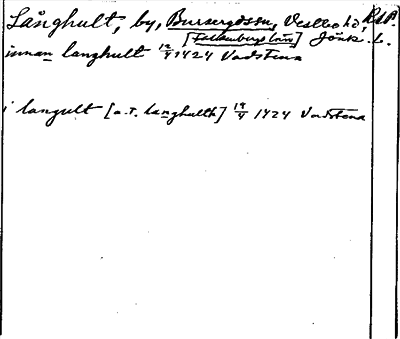 Långhult, by, Burseryds sn, Vestbo hd, RAP.
[Falkenbergs län] Jönk. L.
innan langhult 19/9 1424 Vadstena
i langult [a.t. langhullt] 19/9 1424 Vadstena